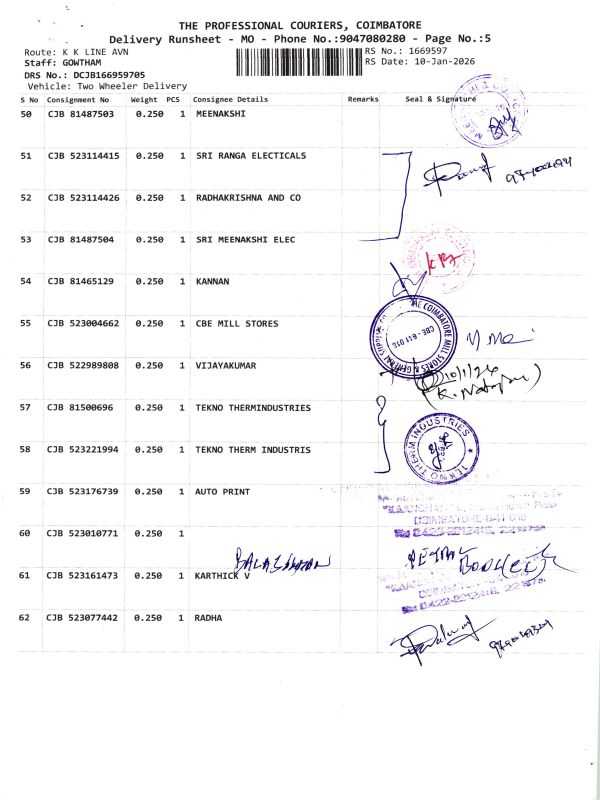 THE PROFESSIONAL COURIERS, COIMBATORE
Delivery Runsheet - MO - Phone No.:9047080280 - Page No.:5
Route: K K LINE AVN RS No.: 1669597
Staff: GOWTHAM RS Date: 10-Jan-2026
DRS No.: DCJB166959705
Vehicle: Two Wheeler Delivery
S No Consignment No Weight PCS Consignee Details Remarks Seal & Signature
50 CJB 81487503 0.250 1 MEENAKSHI
51 CJB 523114415 0.250 1 SRI RANGA ELECTICALS
52 CJB 523114426 0.250 1 RADHAKRISHNA AND CO
53 CJB 81487504 0.250 1 SRI MEENAKSHI ELEC
54 CJB 81465129 0.250 1 KANNAN
55 CJB 523004662 0.250 1 CBE MILL STORES
THE COIMBATORE MILL STORES & GENERAL
CBE - 641 018
56 CJB 522989808 0.250 1 VIJAYAKUMAR
10/1/26
57 CJB 81500696 0.250 1 TEKNO THERMINDUSTRIES
58 CJB 523221994 0.250 1 TEKNO THERM INDUSTRIS
TEKNO THERM INDUSTRIES
59 CJB 523176739 0.250 1 AUTO PRINT
60 CJB 523010771 0.250 1
61 CJB 523161473 0.250 1 KARTHICK V
62 CJB 523077442 0.250 1 RADHA